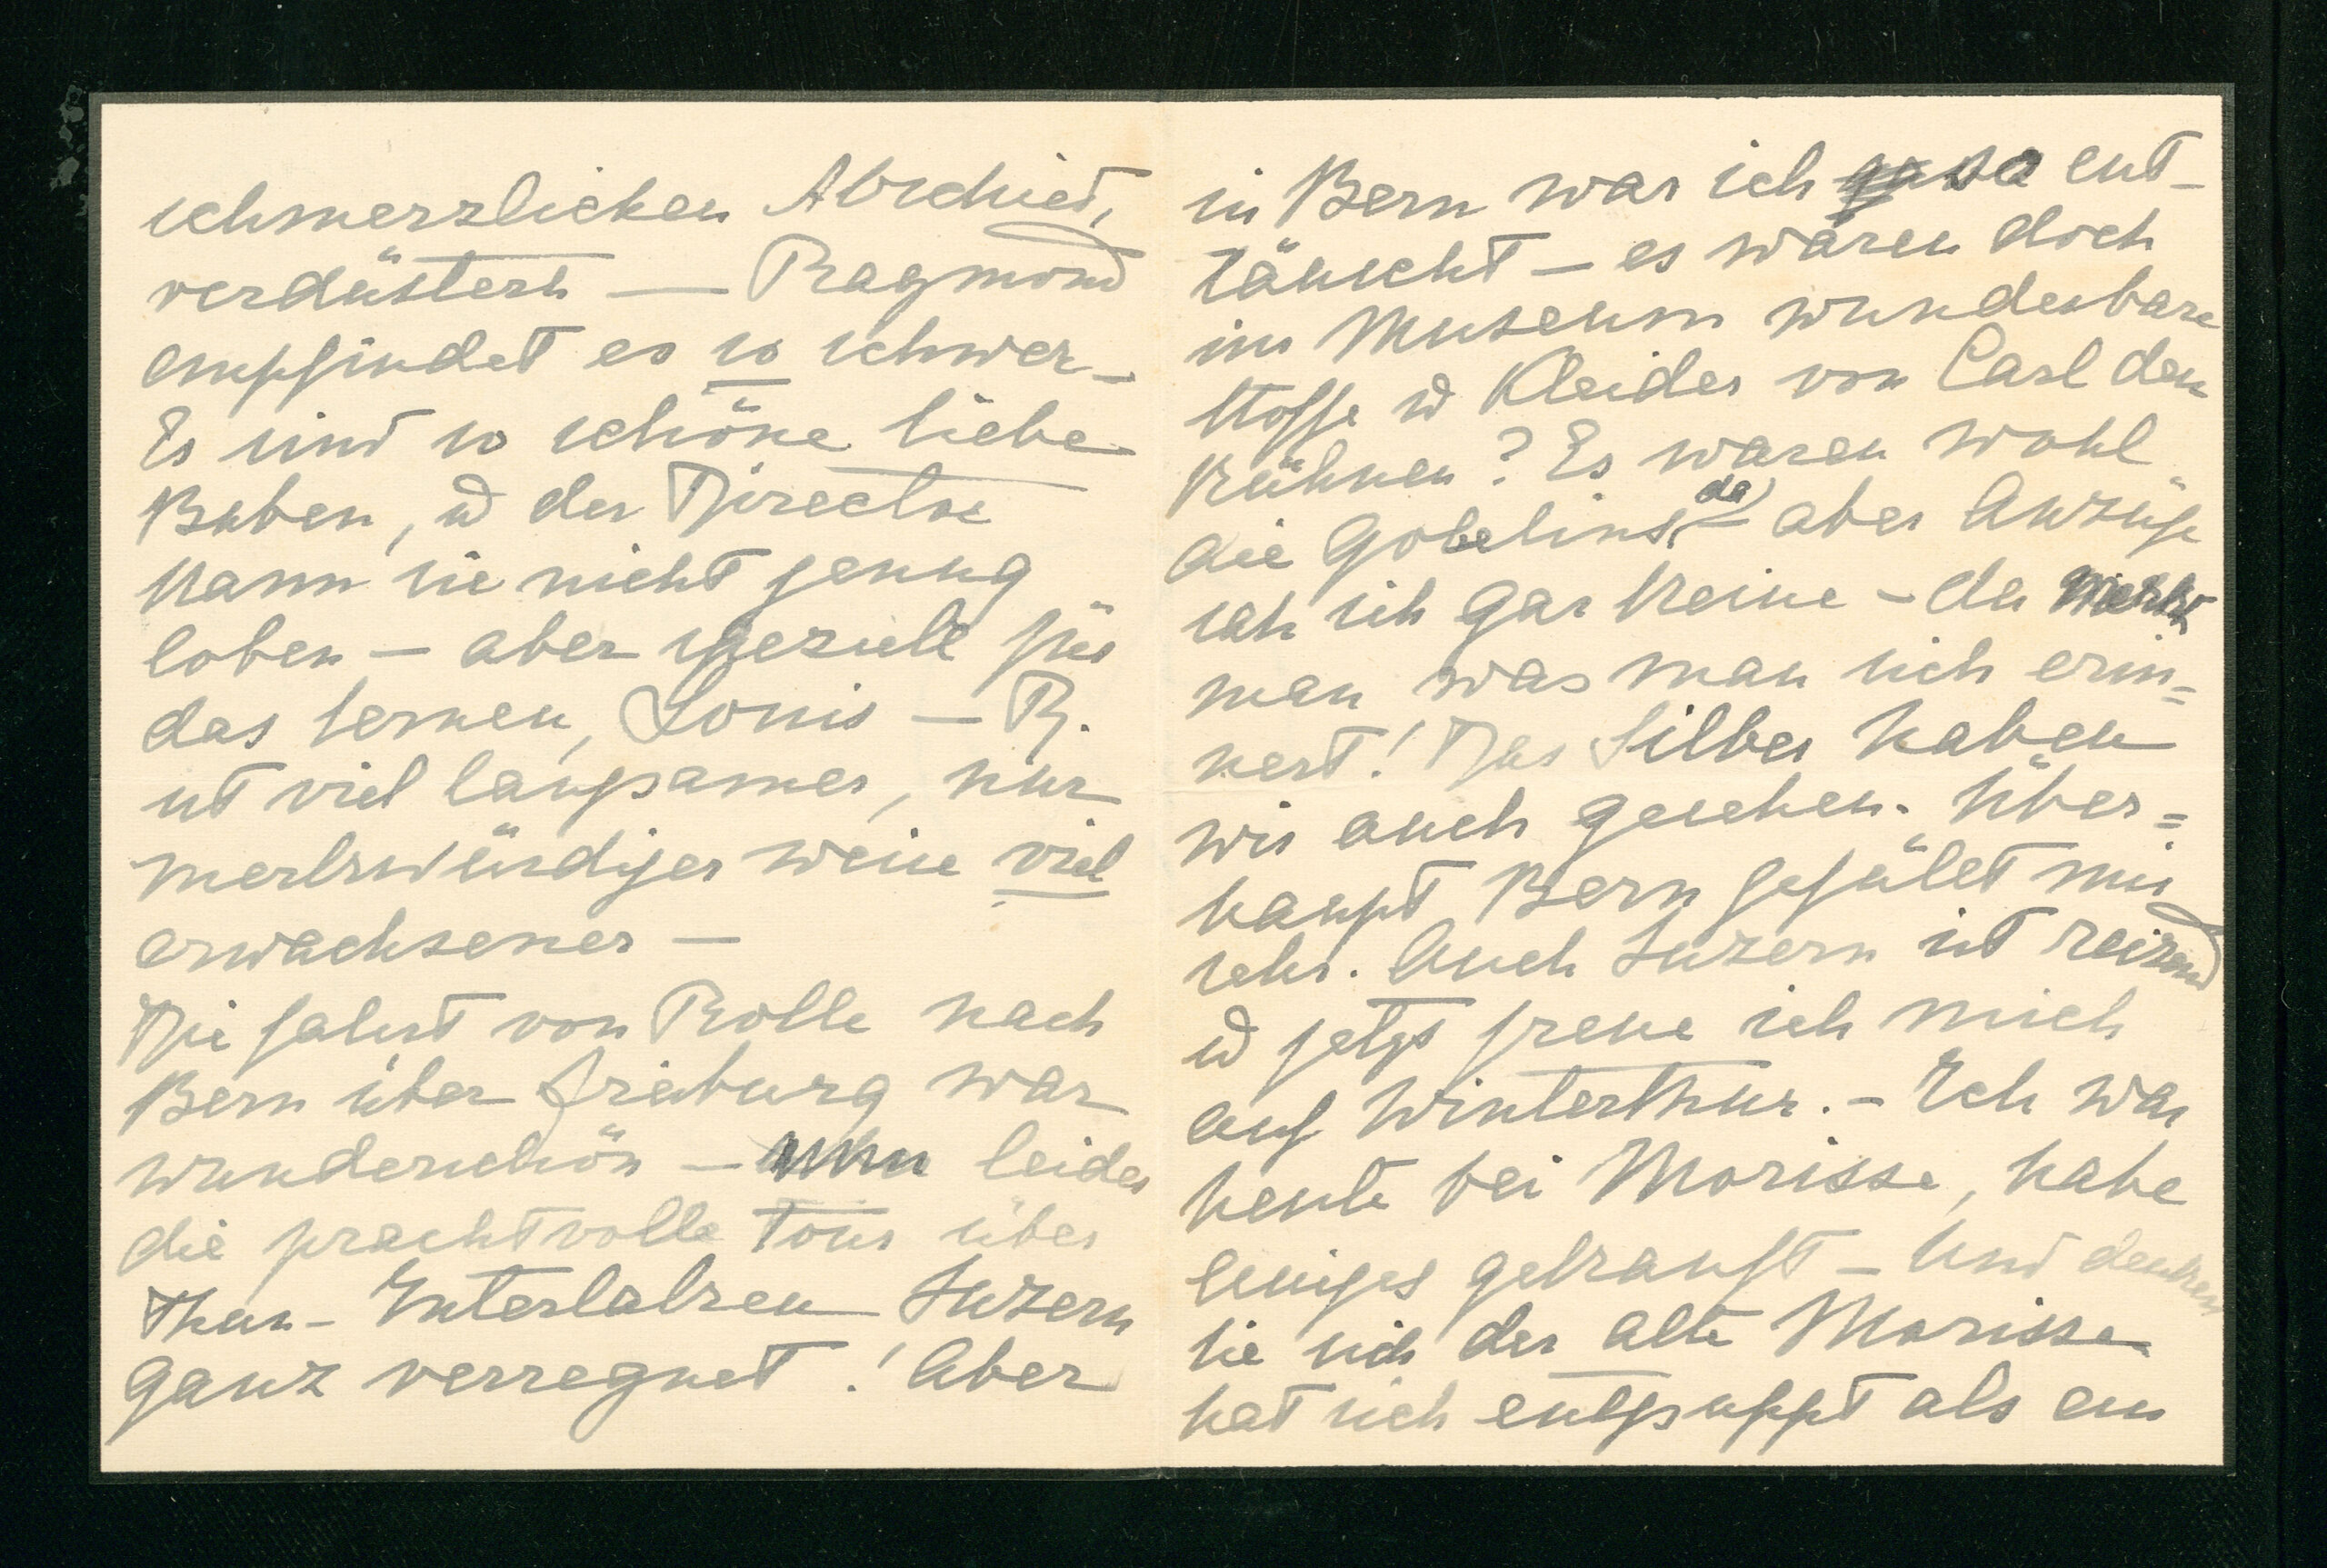 schmerzlichen Abschied,
verdüstert — Raymond
empfindet es so schwer —
Es sind so schöne liebe
Buben, u der Director
kann sie nicht genug
loben — aber speziell für
das lernen, Louis — R.
ist viel langsamer, nur
merkwürdiger weise viel
erwachsener —
Die fahrt von Rolle nach
Bern über Freiburg war
wunderschön — nun leider
die prachtvolle Tour über
Thun - Interlaken Luzern
ganz verregnet! Aber
in Bern war ich so ent-
täuscht — es waren doch
im Museum wunderbare
Stoffe u Kleider von Carl dem
Kühnen? Es waren wohl
die Gobelins da — aber Anzüge
sah ich gar keine — da merkt
man was man sich erin=
nert! Das Silber haben
wir auch gesehen. Über=
haupt Bern gefällt mir
sehr. Auch Luzern ist reizend
u jetzt freue ich mich
auf Winterthur. — Ich war
heute bei Morisse, habe
einiges gekauft — Und denken
Sie sich der alte Morisse
hat sich entpuppt als ein